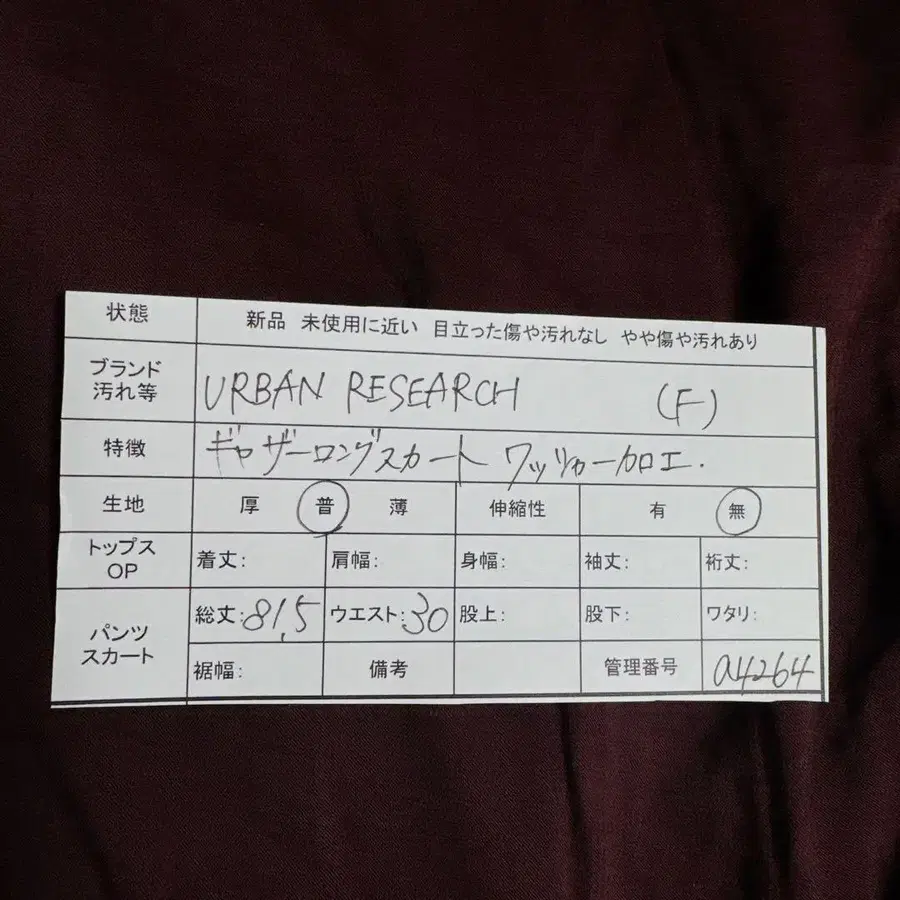 状態 新品 未使用に近い 目立った傷や汚れなし やや傷や汚れあり
ブランド
汚れ等 URBAN RESEARCH (F)
特徴 ギャザーロングスカート ワッシャー加工.
生地 厚 普 薄 伸縮性 有 無
トップス
OP 着丈: 肩幅: 身幅: 袖丈: 裄丈:
パンツ
スカート 総丈:81.5 ウエスト:30 股上: 股下: ワタリ:
裾幅: 備考 管理番号 a4264